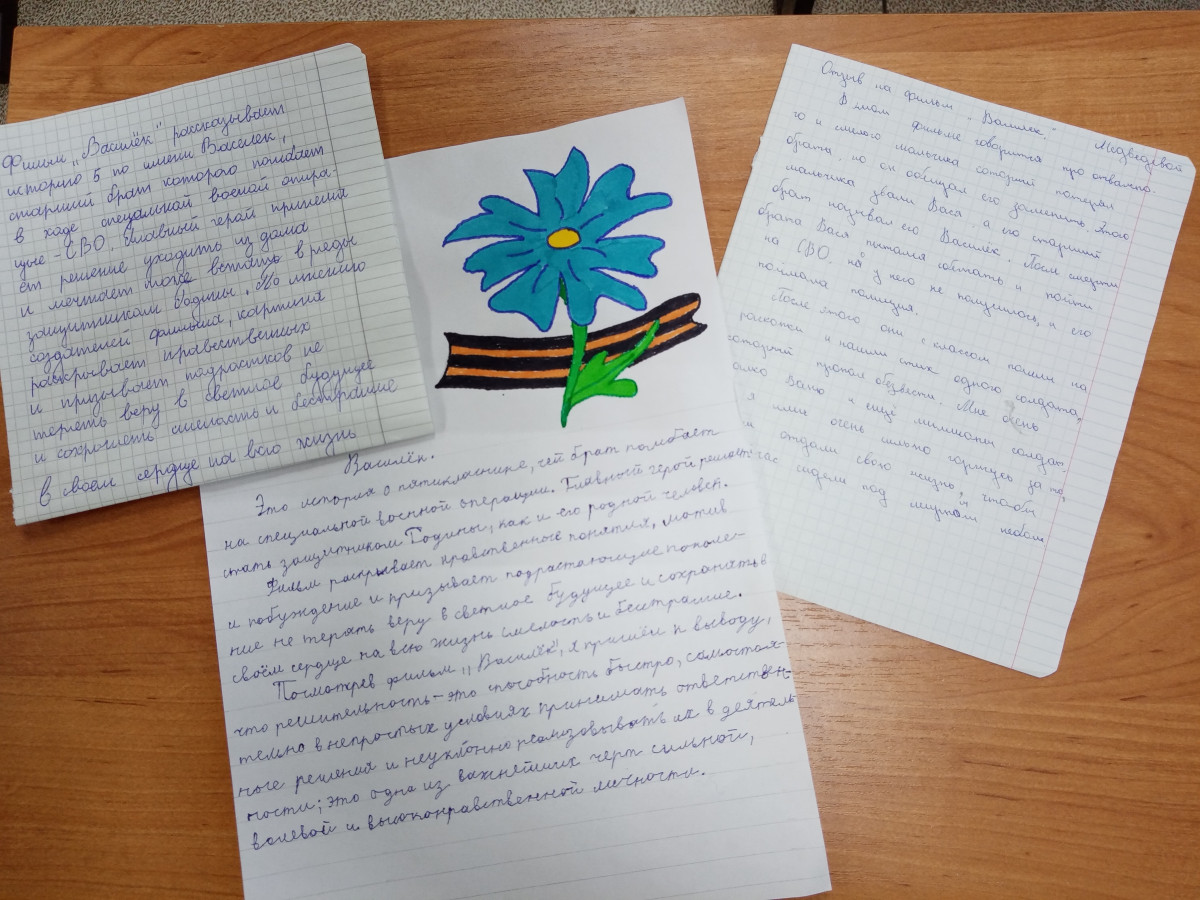 Фильм „Василёк" рассказывает
историю 5 по имени Василек,
старший брат которого погибает
в ходе специальной военой опера-
цые - СВО. Главный герой принима
ет решение уходить из дома
и мечтает тоже встать в ряды
защитникам Родины. По мнению
создателей фильма, картина
раскрывает нравственных
и призывает подрастков не
терять веру в светлое будущее
и сохронить смелость и бесстрашие
в своем сердце на всю жизнь
Василёк.
Это история о пятикласнике, чей брат погибает
на специальной военной операции. Главный герой решает
стать защитником Родины, как и его родной человек.
Фильм раскрывает нравственные понятия, мотив
и побуждение и призывает подрастающие поколе-
ние не терять веру в светлое будущее и сохранять в
своём сердце на всю жизнь смелость и бесстрашие.
Посмотрев фильм „Василёк", я пришёл к выводу,
что решительность - это способность быстро, самостоя-
тельно в непростых условиях принимать ответствен-
ные решения и неуклонно реализовывать их в деятель-
ности; это одна из важнейших черт сильной,
волевой и высоконравственной личности.
Отзыв на фильм „Василек".
Медведевой
В этом фильме говорится про отважно-
го и смелого мальчика который потерял
брата, но он обещал его заменить. Этого
мальчика звали Вася, а его старший
брат называл его Василёк. После смерти
брата Вася пытался сбежать и пойти
на СВО, но у него не получилось, и его
поймала полиция.
После этого они с классом пошли на
раскопки и нашли стих одного солдата,
который пропал безвести. Мне очень
жалко Ваню и ещё миллионы солдат.
я ими очень сильно горжусь за то,
отдали свою жизнь, чтобы
сидели под мирным небом